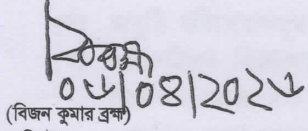 ০৬|০৪|২০২৬
(বিজন কুমার ব্রহ্ম)